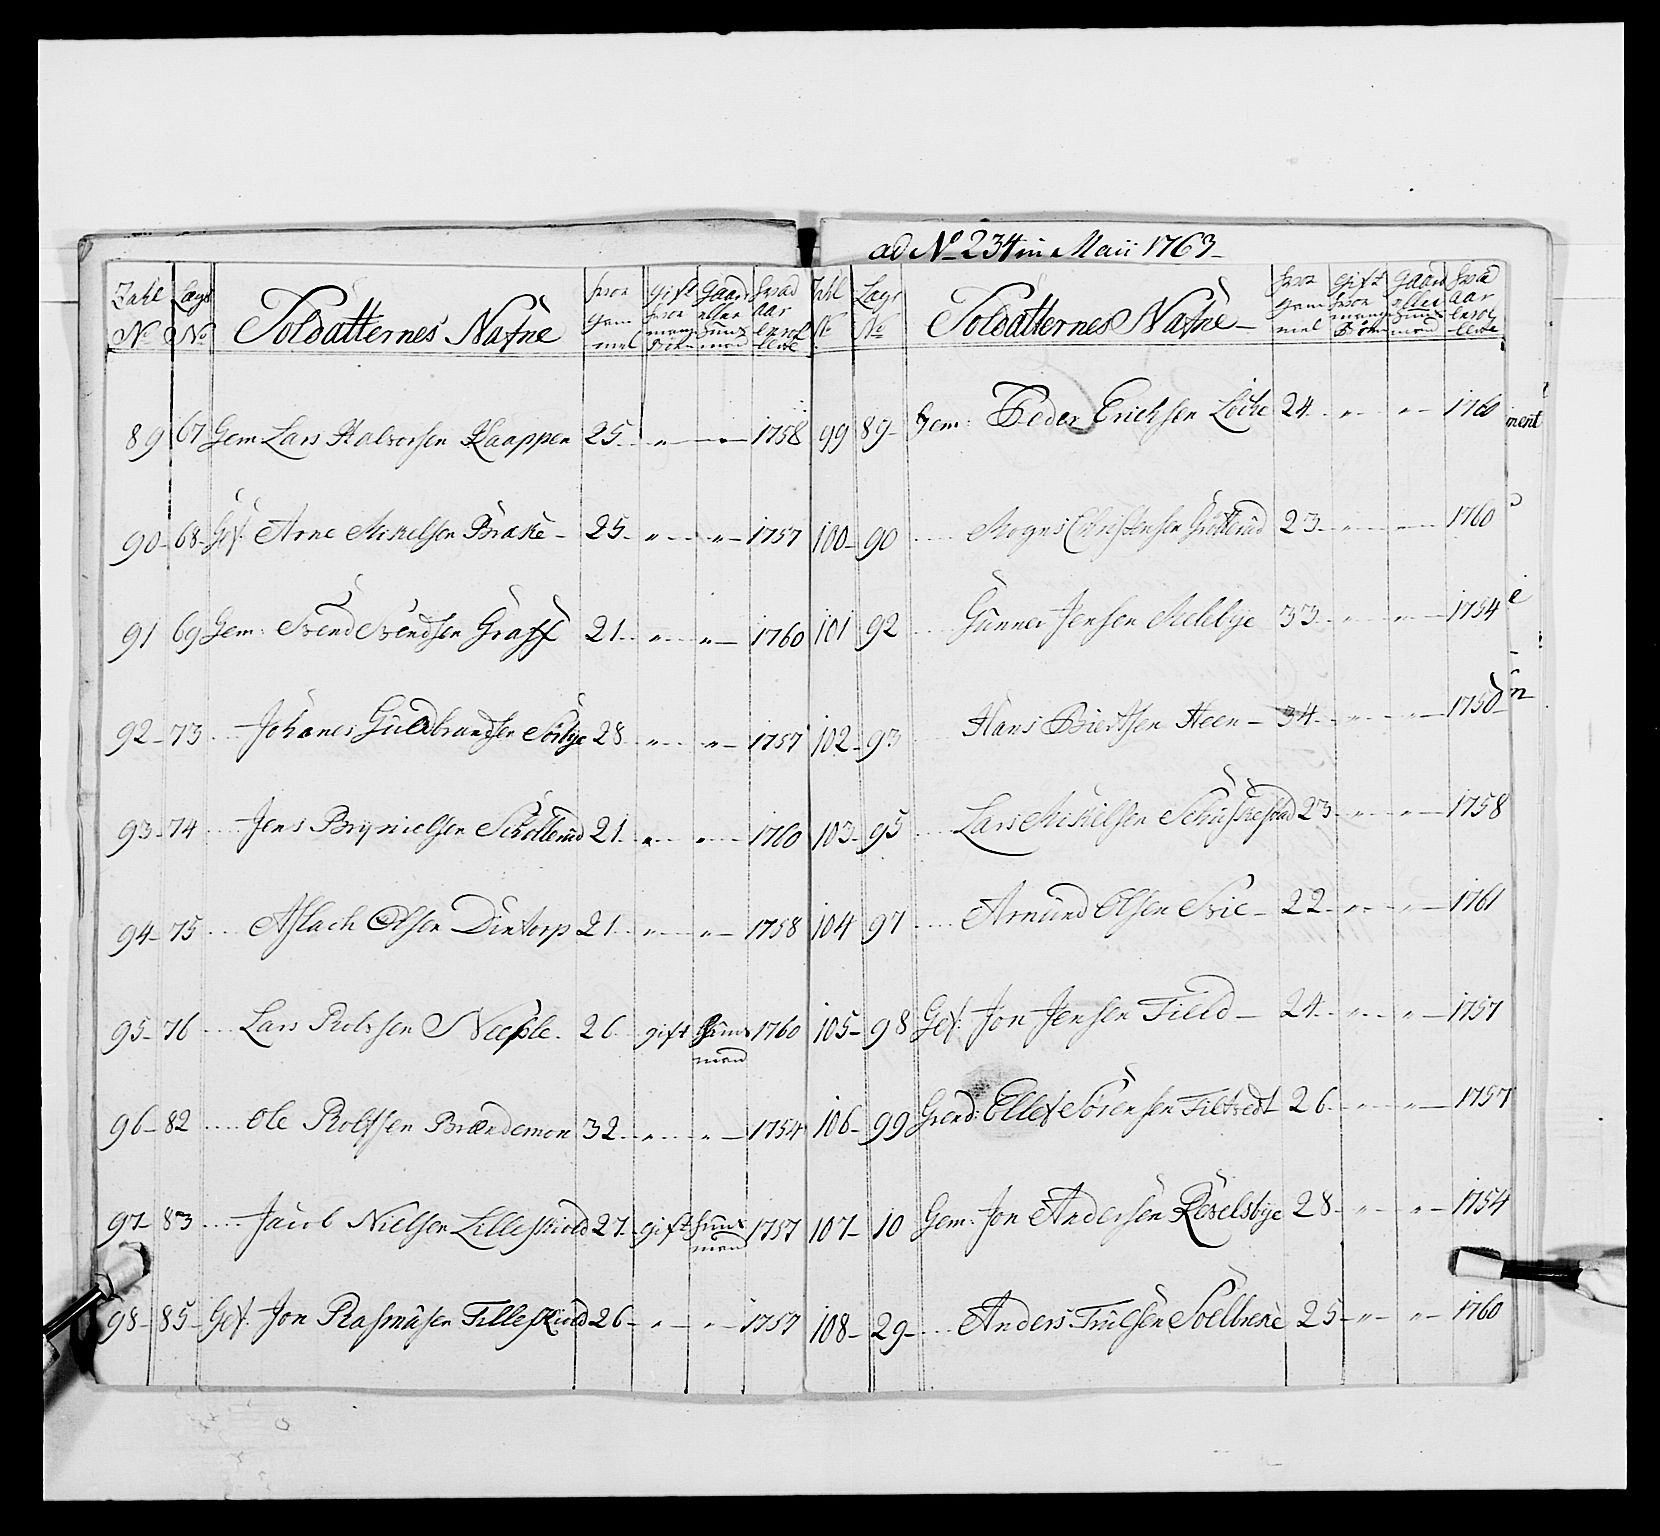 ad No 234 in Maii 1763
Zahl No Lægs No Soldatternes Nafne hvor gam mel gift hvor mange Børn Gaard eller Huus mand hvad aar enrol lleret
89 67 Gem Lars Halvorsen Kaappen 25 " " 1758
90 68 Gef: Arne Mikelsen Brake 25 " " 1757
91 69 Gem: Svend Svendsen Graff 21 " " 1760
92 73 Johanes Guldbrandsen Sørbye 28 " " 1757
93 74 Jens Brynielsen Schollerud 21 " " 1760
94 75 Aslach Olsen Dintorp 21 " " 1758
95 76 Lars Rolvsen Neeple 26 gift Huus mand 1760
96 82 Ole Rolfsen Brændemoen 32 " " 1754
97 83 Jacob Nielsen Lilleskiold 27 gift Huus mand 1757
98 85 Gef: Jon Rasmusen Filleskiold 26 " " 1757
Zahl No Lægs No Soldatternes Nafne hvor gam mel gift hvor mange Børn Gaard eller Huus mand hvad aar enrol lleret
99 89 Gem: Peder Erichsen Løche 24 " " 1760
100 90 Mogns Christensen Grøtterud 23 " " 1760
101 92 Gunner Jensen Melebye 33 " " 1754
102 93 Hans Biertsen Heen 34 " " 1750
103 95 Lars Mikelsen 23 " " 1758
104 97 Amund Olsen Svie 22 " " 1761
105 98 Gef: Jon Jensen Field 24 " " 1757
106 99 Grend: Ellef Sørensen Filtvedt 26 " " 1757
107 10 Gem: Jon Andersen Røselsbye 28 " " 1754
108 29 Anders Truelsen Solbrekke 25 " " 1760